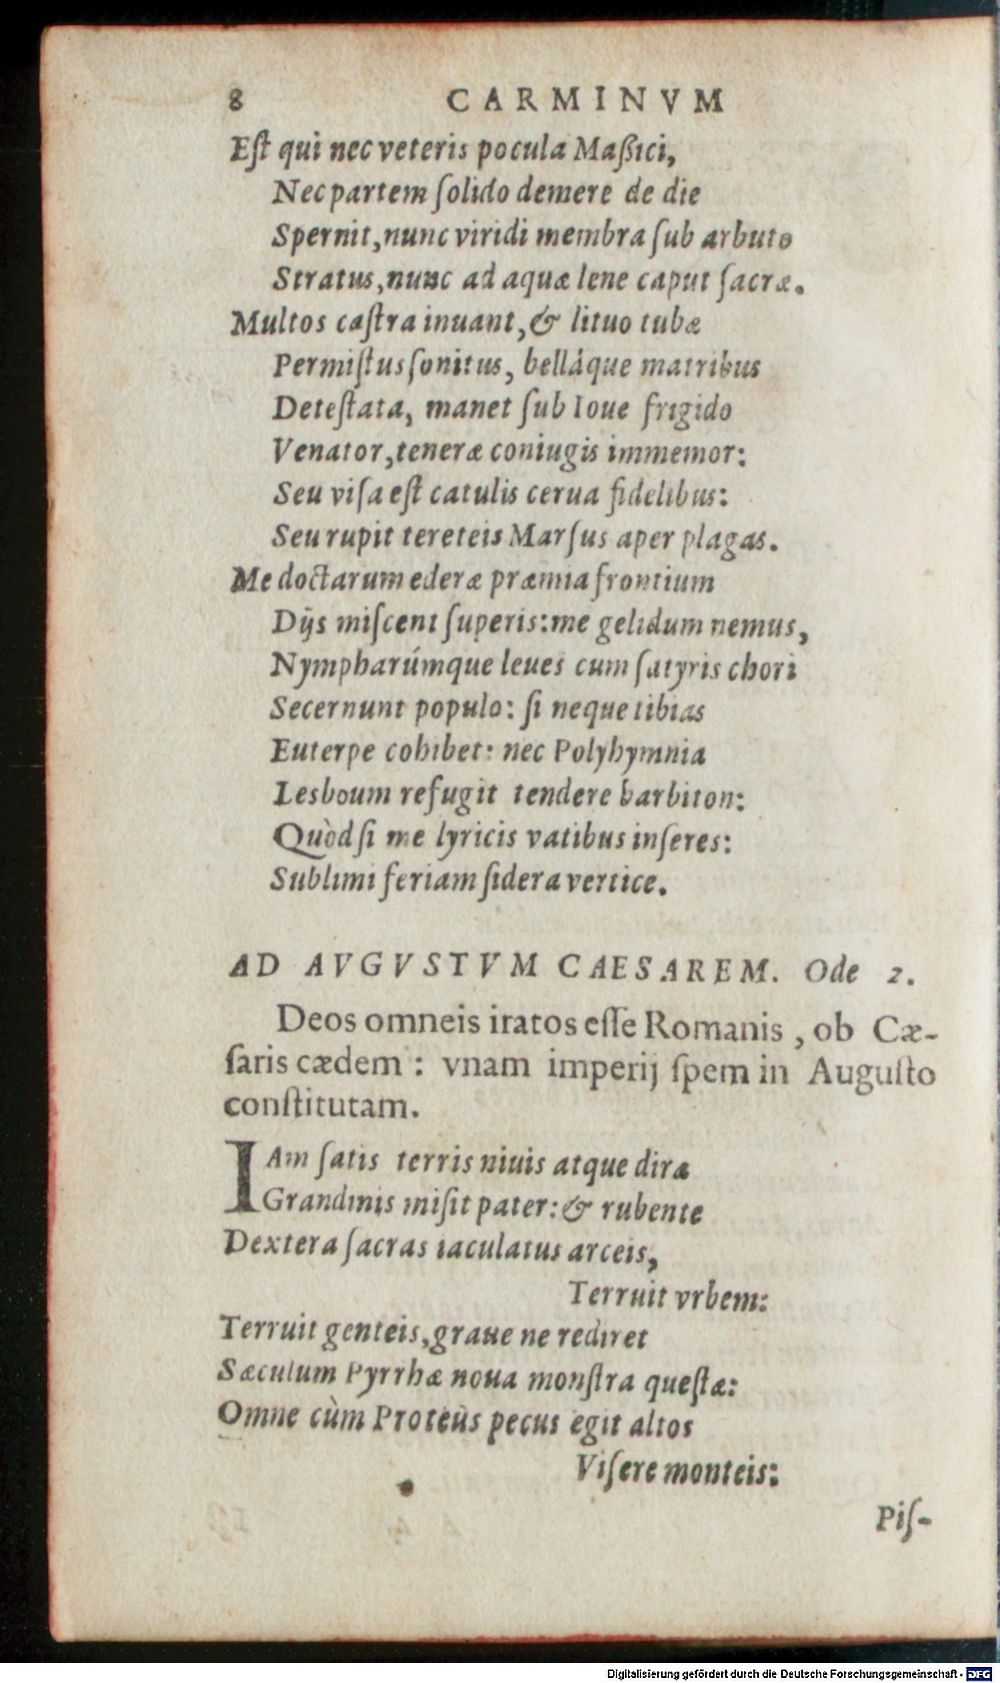 8 CARMINVM
Eſt qui nec veteris pocula Maßici,
Nec partem ſolido demere de die
Spernit, nunc viridi membra ſub arbuto
Stratus, nunc ad aquæ lene caput ſacræ.
Multos caſtra iuuant, & lituo tubæ
Permiſtus ſonitus, belláque matribus
Deteſtata, manet ſub Ioue frigido
Venator, teneræ coniugis immemor:
Seu viſa eſt catulis cerua fidelibus:
Seu rupit tereteis Marſus aper plagas.
Me doctarum ederæ præmia frontium
Dijs miſcent ſuperis: me gelidum nemus,
Nympharúmque leues cum ſatyris chori
Secernunt populo: ſi neque tibias
Euterpe cohibet: nec Polyhymnia
Lesboum refugit tendere barbiton:
Quòd ſi me lyricis vatibus inſeres:
Sublimi feriam ſidera vertice.
AD AVGVSTVM CAESAREM. Ode 2.
Deos omneis iratos eſſe Romanis, ob Cæ-
ſaris cædem: vnam imperij ſpem in Auguſto
conſtitutam.
IAm ſatis terris niuis atque diræ
Grandinis miſit pater: & rubente
Dextera ſacras iaculatus arceis,
Terruit vrbem:
Terruit genteis, graue ne rediret
Sæculum Pyrrhæ noua monſtra queſtæ:
Omne cùm Proteus pecus egit altos
Viſere monteis:
Piſ-
Digitalisierung gefördert durch die Deutsche Forschungsgemeinschaft - DFG